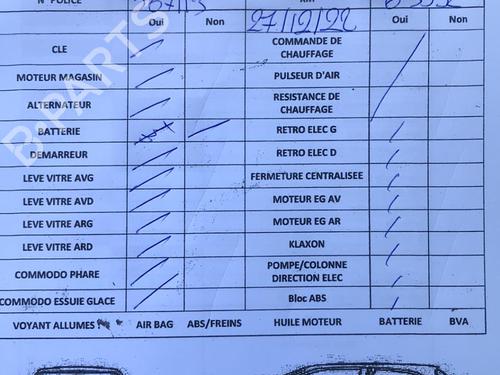 N° POLICE
Km
Oui Non 27/12/22 Oui Non
CLE COMMANDE DE
CHAUFFAGE
MOTEUR MAGASIN PULSEUR D'AIR
ALTERNATEUR RESISTANCE DE
CHAUFFAGE
BATTERIE RETRO ELEC G
DEMARREUR RETRO ELEC D
LEVE VITRE AVG FERMETURE CENTRALISEE
LEVE VITRE AVD MOTEUR EG AV
LEVE VITRE ARG MOTEUR EG AR
LEVE VITRE ARD KLAXON
COMMODO PHARE POMPE/COLONNE
DIRECTION ELEC
COMMODO ESSUIE GLACE Bloc ABS
VOYANT ALLUMES AIR BAG ABS/FREINS HUILE MOTEUR BATTERIE BVA
B-PARTS